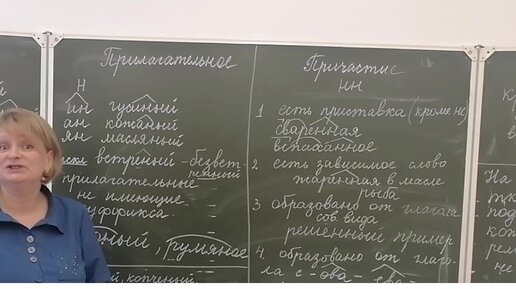 Прилагательное
Н
ин гусиный
ан кожаный
ян масляный
искл ветренный - безвет-
ренный
прилагательные
не имеющие
суффикса
румяное
копченый
Причастие
НН
1 есть приставка (кроме не)
сваренная
вспаханное
2 есть зависимое слово
жаренная в масле
рыба
3 образовано от глагола
сов вида
решенный пример
4 образовано от глаго-
ла с -ова-
На